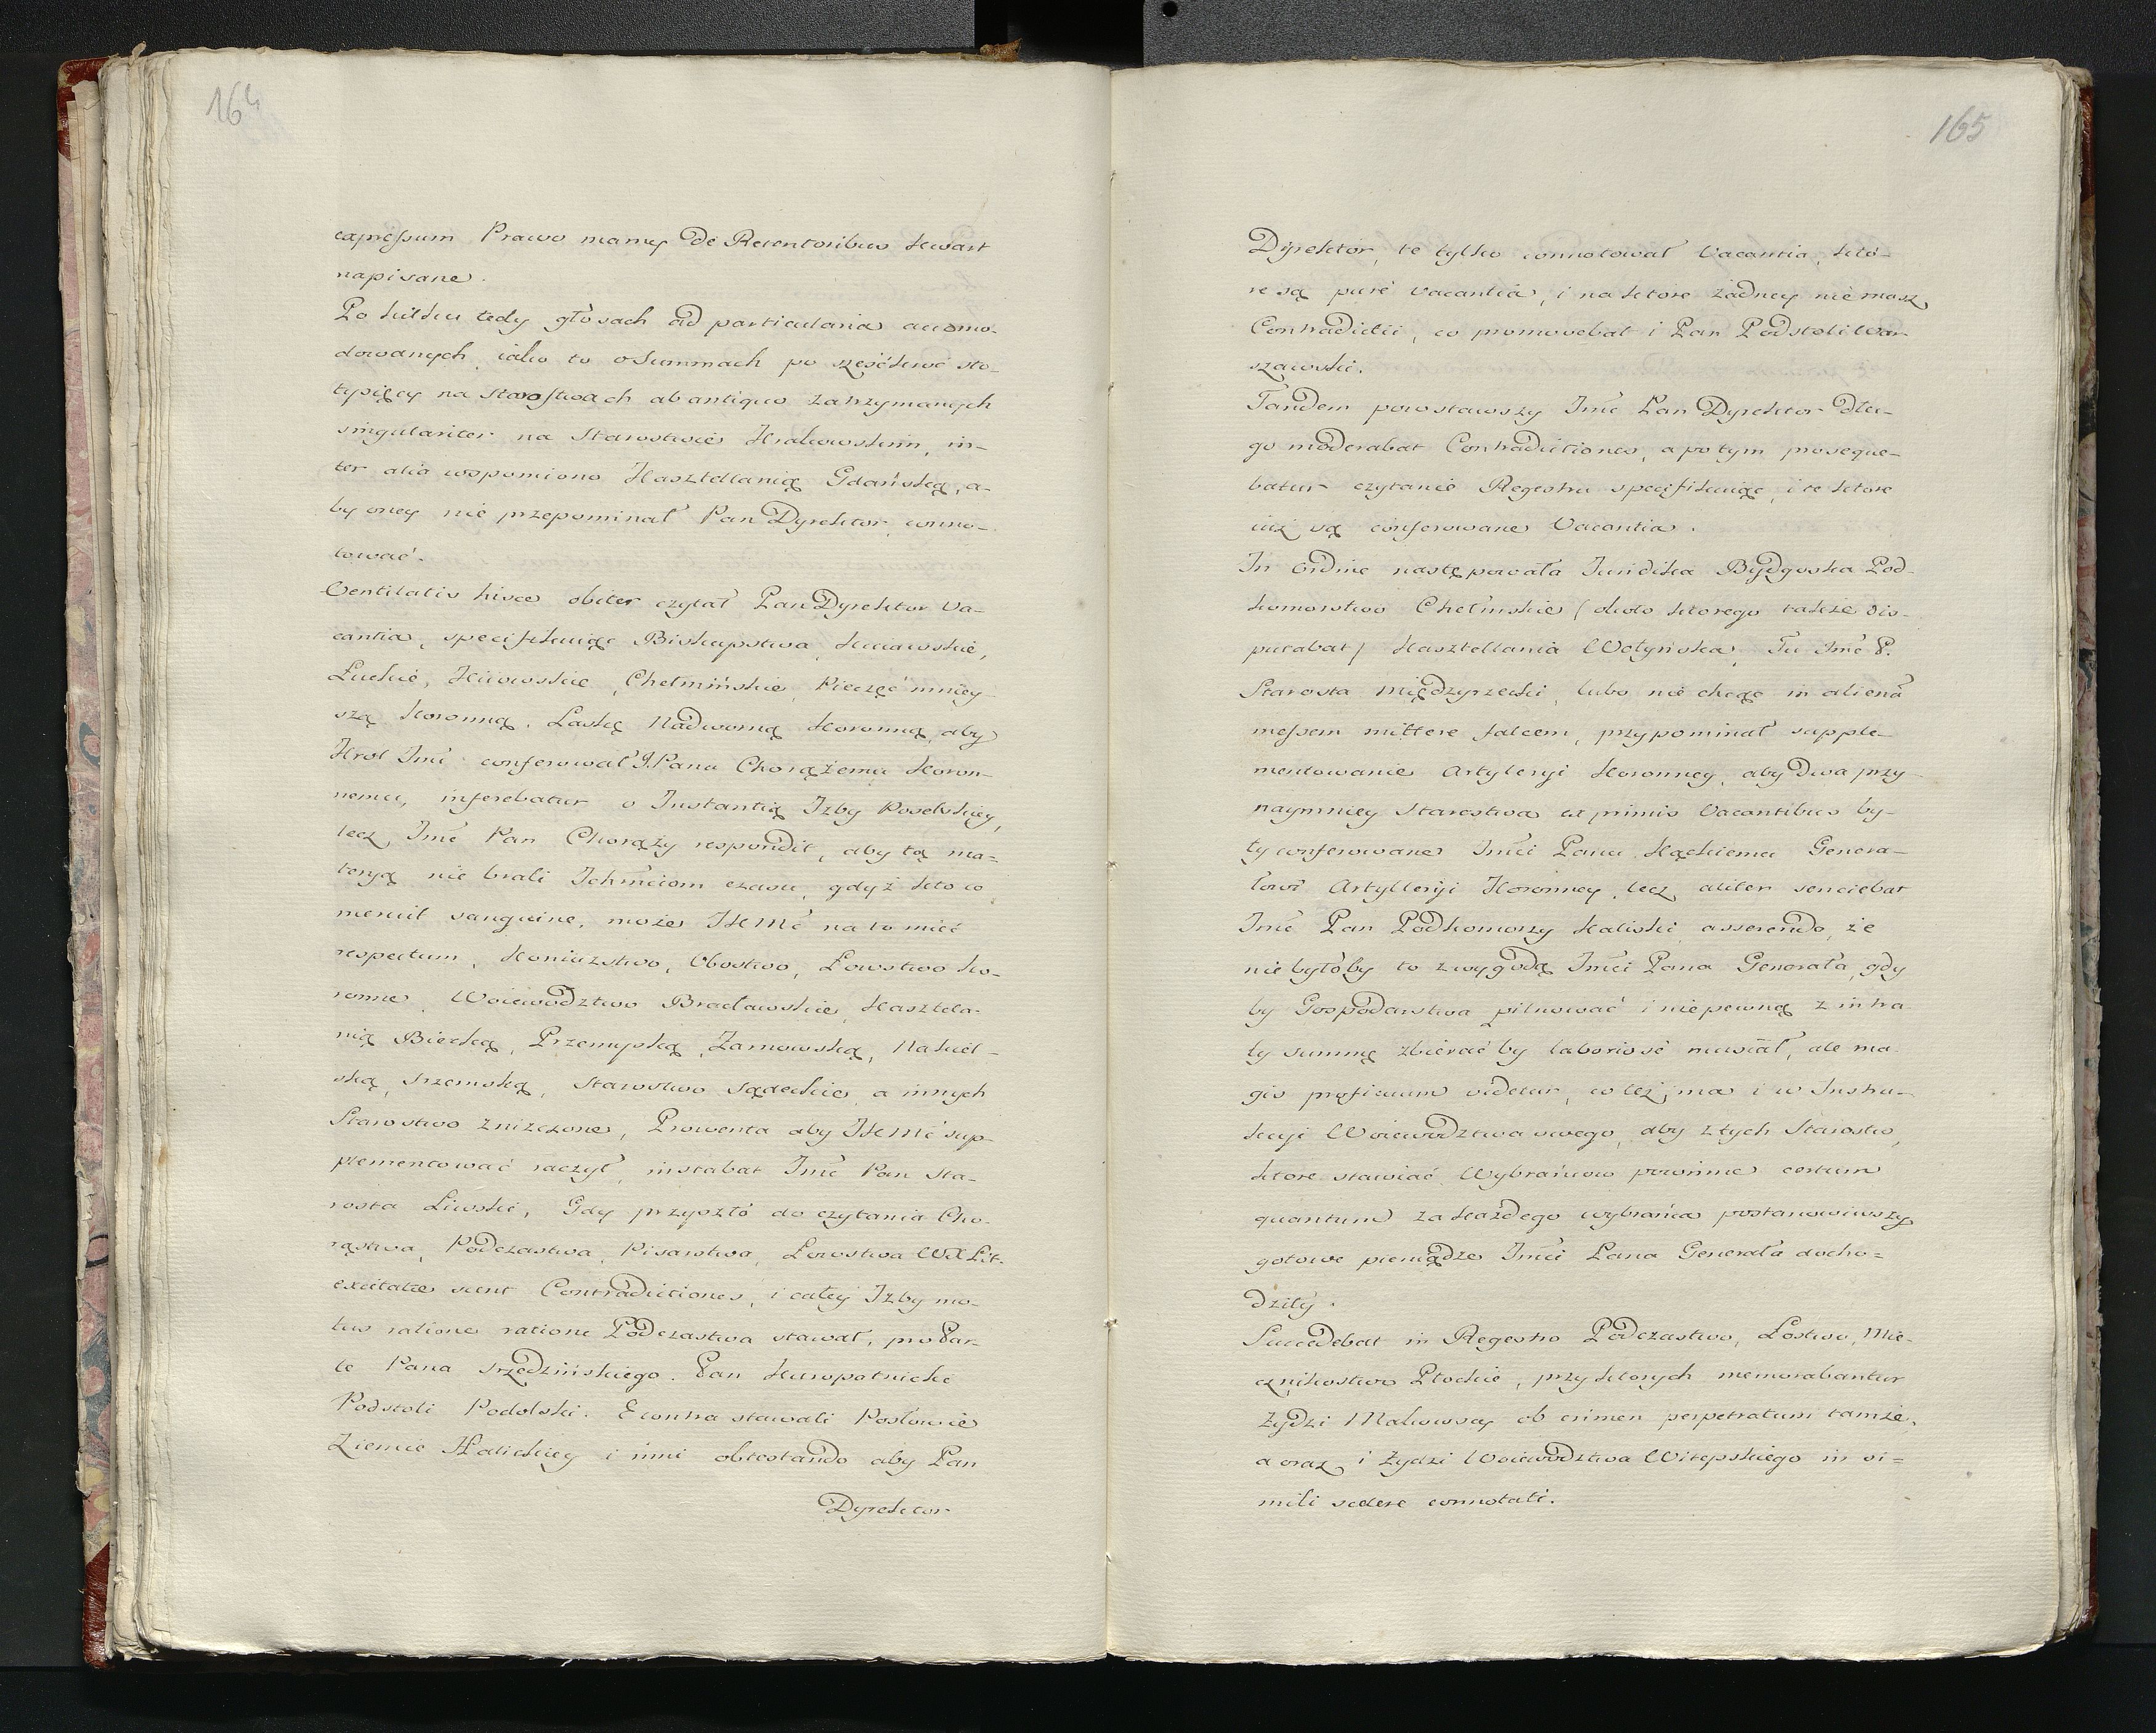 164
expressum Prawo mamy De Retentoribus kwart
napisane.
Po kilku tedy głosach ad particularia accomo-
dowanych, iako to o Summach po sześćkroć sto-
tysięcy na Starostwach ab antiquo zatrzymanych
singulariter na Starostwie Krakowskim, in-
ter alia wspomiono Kasztellanią Gdańską, a-
by oney nie przepominał Pan Dyrektor conno-
tować.
Ventilatis hisce obiter czytał Pan Dyrektor Va-
cantia, specifikuiąc Biskupstwa, Kuiawskie,
Łuckie, Kiiowskie, Chełmińskie, Pieczęć mniey-
szą Koronną, Laskę Nadworną Koronną, aby
Krol Jmć conferował J. Panu Chorążemu Koron-
nemu, inferebatur o Instantią Izby Poselskiey,
lecz Jmć Pan Chorąży respondit, aby tą ma-
teryą nie brali Ichmciom czasu, gdyż kto co
meruit sanguine, może JKMć na to mieć
respectum, Koniuszstwo, Obostwo, Łowstwo Ko-
ronne, Woiewodztwo Bracławskie, Kasztela-
nią Biecką, Przemyską, Zarnowską, Nakiel-
ską, Srzemską, Starostwo Sądeckie, a innych
Starostwo zniszczone, Prowenta aby JKMć sup-
plementować raczył, instabat Jmć Pan Sta-
rosta Liwski, Gdy przyszło do czytania Cho-
rąstwa, Podczastwa, Pisarstwa, Łowstwa WX Lit.
excitatæ sunt Contradictiones, i całey Izby mo-
tus ratione ratione Podczastwa stawał, pro Par-
te Pana Srzedzińskiego. Pan Kuropatnicki
Podstoli Podolski. E contra stawali Posłowie
Ziemie Halickiey i inni obtestando aby Pan
Dyrektor
165
Dyrektor, te tylko connotował Vacantia, któ-
re są puré vacantia, i na ktore żadney nie masz
Contradictii, co promovebat i Pan Podstoli War-
szawski.
Tandem powstawszy Jmć Pan Dyrektor dłu-
go moderabat Contradictiones, a po tym proseque-
batur czytanie Regestru specifikuiąc, i te ktore
iuż są conferowane Vacantia.
In Ordine następowała Iuridika Bydgoska Pod-
komorstwo Chełmskie (około ktorego także dis-
putabat) Kasztellania Wołyńska, Tu Jmć P.
Starosta Międzyrzecki, lubo nie chcąc in alienã
messem mittere falcem, przypominał supple-
mentowanie Artyleryi Koronney, aby dwa przy
naymniey Starostwa ex primis Vacantibus by-
ły conferowane Jmci Panu Kąckiemu Genera-
łowi Artylleryi Koronney, lecz aliter senciebat
Jmć Pan Podkomorzy Kaliski asserendo, że
nie byłoby to z wygodą Jmci Pana Generała, gdy
by Gospodarstwa pilnować i niepewną z intra
ty summę zbierać by laboriosé musiał, ale ma-
gis proficuum videtur, co też ma i w Instru-
kcyi Woiewodztwa swego, aby z tych Starostw,
ktore stawiać Wybrańcow powinne certum
quantum za każdego wybrańca postanowiwszy
gotowe pieniądze Jmci Pana Generała docho-
dziły.
Succedebat in Regestro Podczastwo, Łostwo, Mie-
cznikostwo Płockie, przy ktorych memorabantur
Żydzi Makowscy ob crimen perpetratum tamże,
a oraz i Żydzi Woiewodztwa Witepskiego in si-
mili scelere connotati.